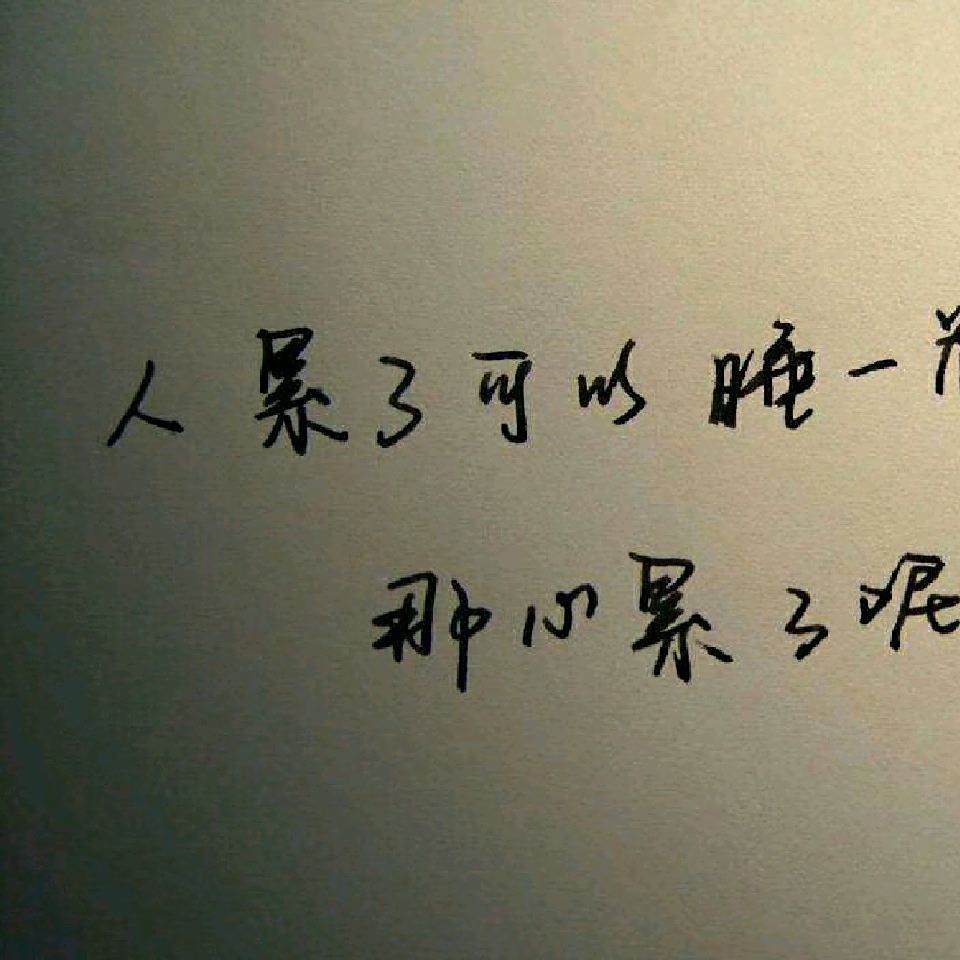 人累了可以睡一
那心累了呢